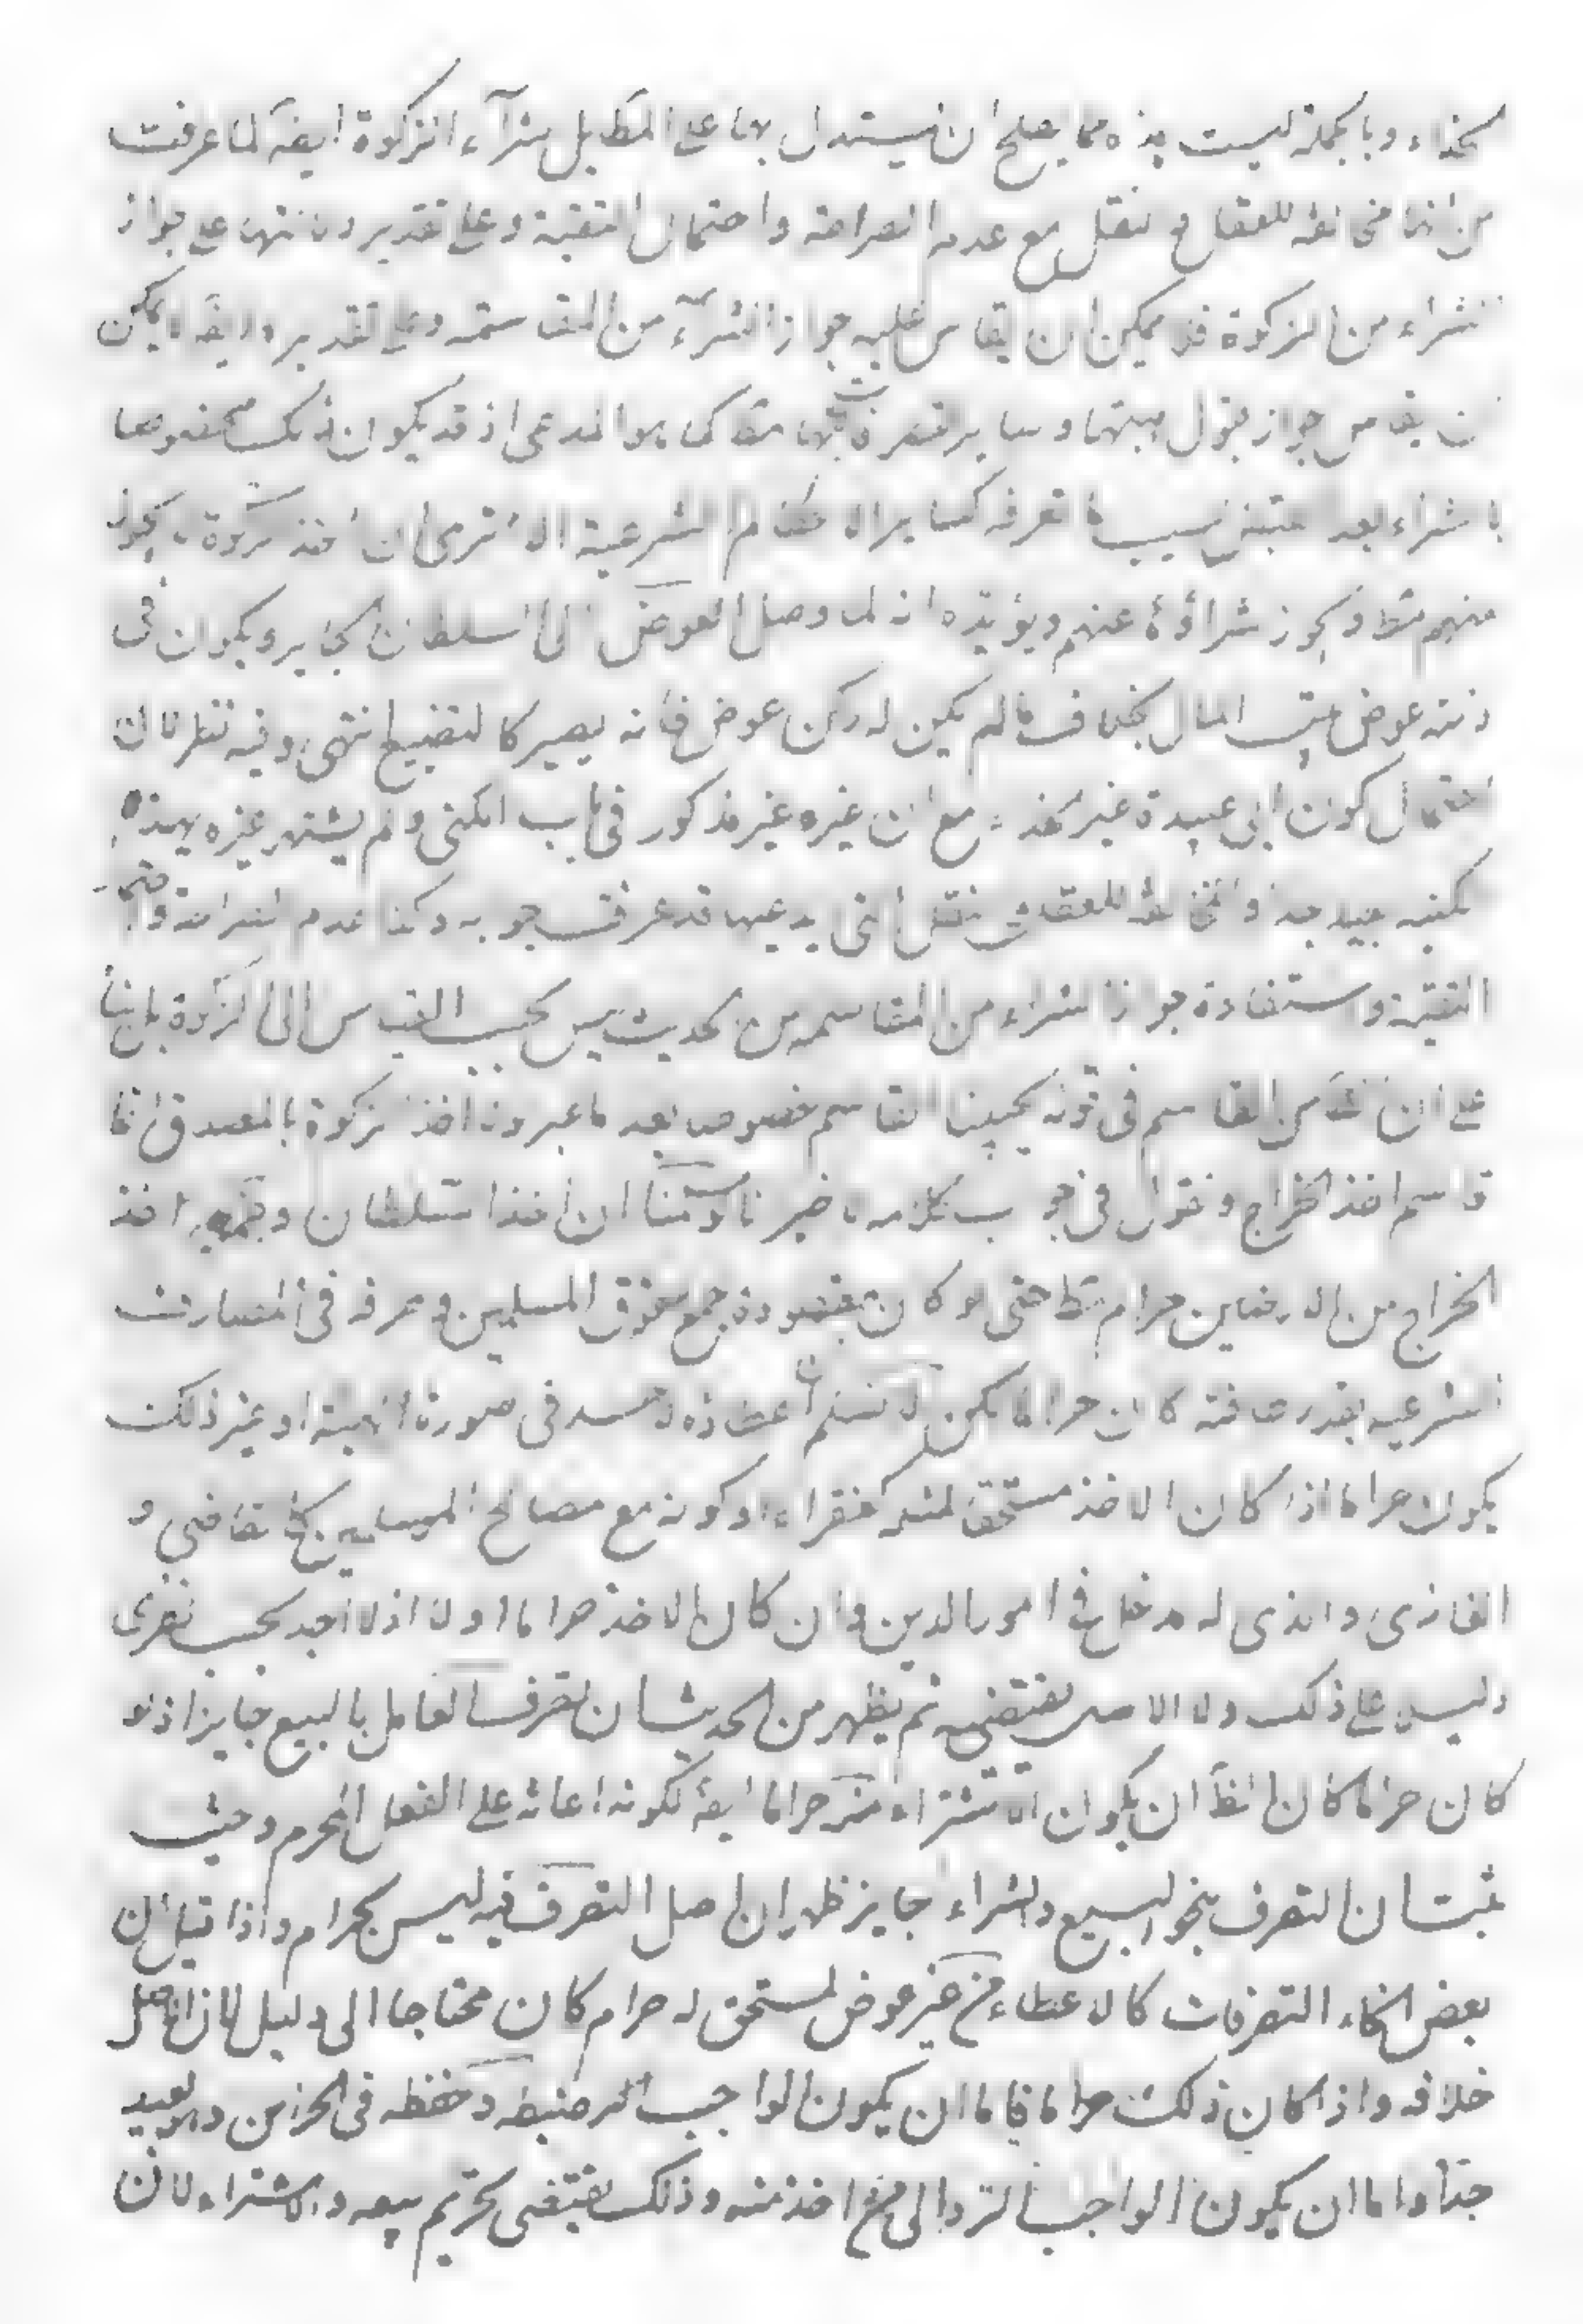 الحذاء وبالجملة ليست هذه مما يصلح ان يستدل بها على المط بل شراء الزكوة ايضا لما عرفت
من انها مخالفة للعقل والنقل مع عدم الصراحة واحتمال التقية وعلى تقدير دلالتها على جواز
الشراء من الزكوة فلا يمكن ان يقاس عليه جواز الشراء من المقاسمة وعلى تقديره ايضا لا يمكن
ان يقاس جواز قبول هبتها وساير التصرفات بها مط كما هو المدعى اذ قد يكون ذلك مخصوصا
بالشراء بعد القبض لسبب ما نعرفه كساير الاحكام الشرعية الا ترى ان اخذ الزكوة لا يجوز
منهم مط ويجوز شراؤها عنهم ويؤيده انه لما وصل العوض الى السلطان الجاير ويكون في
ذمته عوض بيت المال بخلاف ما لم يكن له ركن عوض فانه يصير كالتضييع انتهى وفيه نظر لان
احتمال كون ابي عبيدة غير الحذاء مع ان غيره غير مذكور في باب الكنى ولم يشتهر غيره بهذه
الكنية بعيد جدا والمخالفة للعقل والنقل التي يدعيها قد عرفت جوابه وكذا عدم الصراحة واحتمال
التقية واستفادة جواز الشراء من المقاسمة من الحديث ليس بحسب القياس الى الزكوة بل بناء
على ان الظ من القاسم في قوله يجيئنا القاسم خصوصا بعد ما عبر عن اخذ الزكوة بالمصدق انما
قاسم اخذ الخراج ونقول في جواب كلامه الاخير انا لو سلمنا ان اخذ السلطان وجمعه اخذ
الخراج من الارضين حرام مط حتى لو كان مقصوده جمع حقوق المسلمين وصرفه في المصارف
الشرعية بقدر طاقته كان حراما لكن لا نسلم ان اعطاءه لاحد في صورة الهبة او غير ذلك
يكون حراما اذا كان الاخذ مستحقا لمثله كفقراء او كونه مع مصالح المسلمين كالقاضي و
الغازي والذي له مدخل في امور الدين وان كان الاخذ حراما اولا اذ لا اجد بحسب نظري
دليلا على ذلك ولا الاصل يقتضيه ثم يظهر من الحديث ان تصرف العامل بالبيع جايز اذ لو
كان حراما كان الظ ان يكون الاشتراء منه حراما ايضا لكونه اعانة على الفعل المحرم وحيث
ثبت ان التصرف بنحو البيع والشراء جايز ظهر ان اصل التصرف فيه ليس بحرام واذا قيل ان
بعض انحاء التصرفات كالاعطاء من غير عوض لمستحق له حرام كان محتاجا الى دليل لان الاصل
خلافه واذا كان ذلك حراما فاما ان يكون الواجب الامر ضبطه وحفظه في الخزائن وهو بعيد
جدا واما ان يكون الواجب الرد الى من اخذ منه وذلك يقتضي تحريم بيعه والاشتراء لان